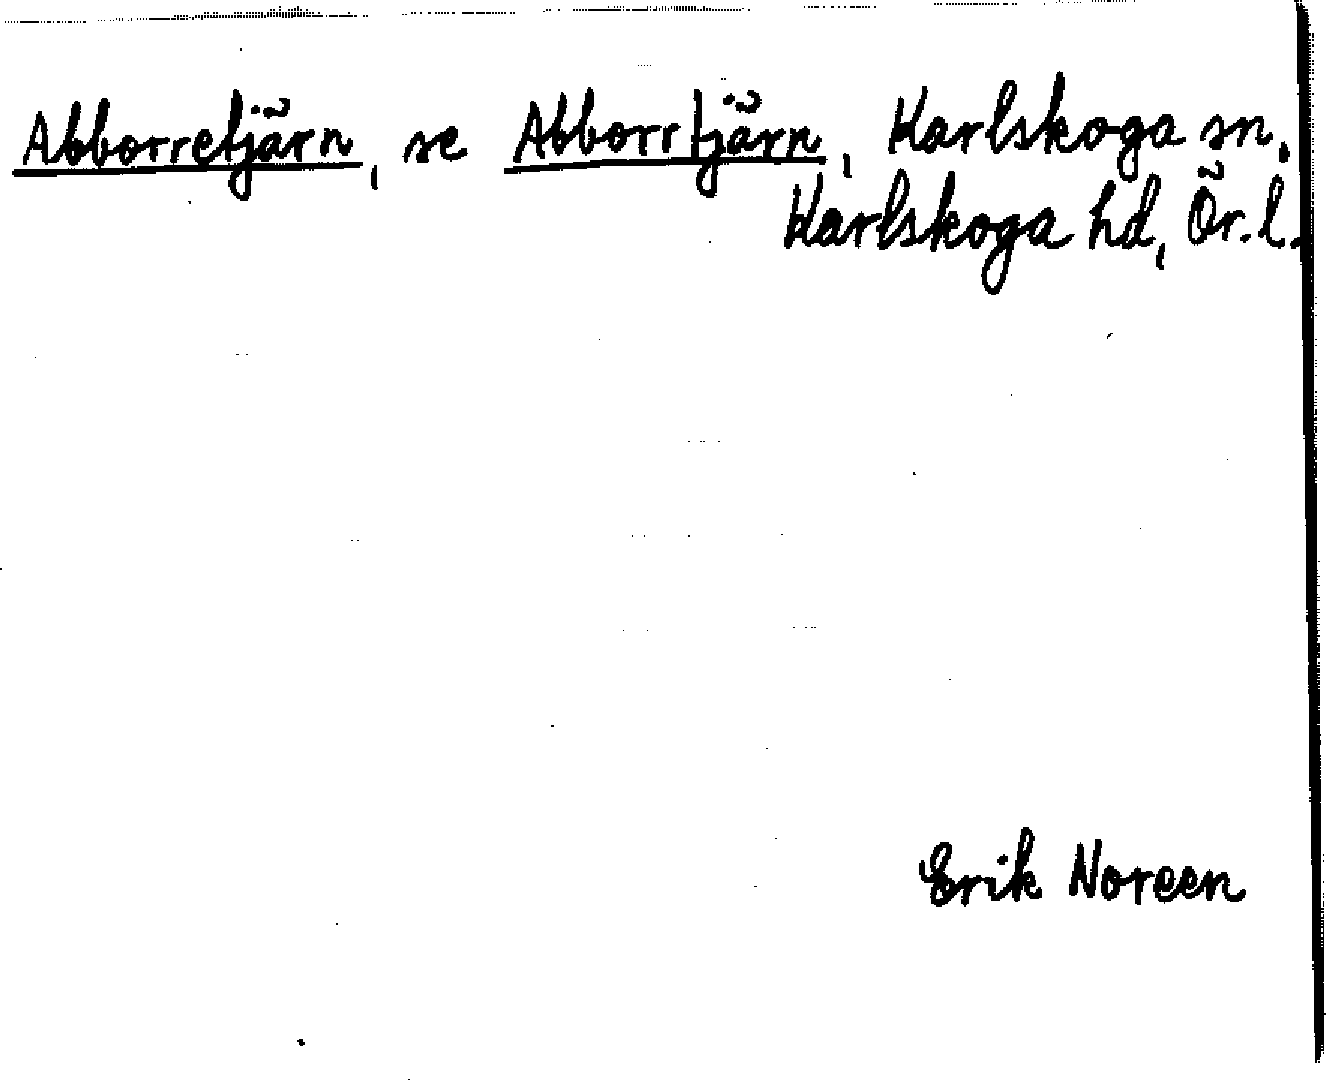 Abborretjärn, se Abborrtjärn, Karlskoga sn,
Karlskoga hd, Ör. l.
Erik Noreen